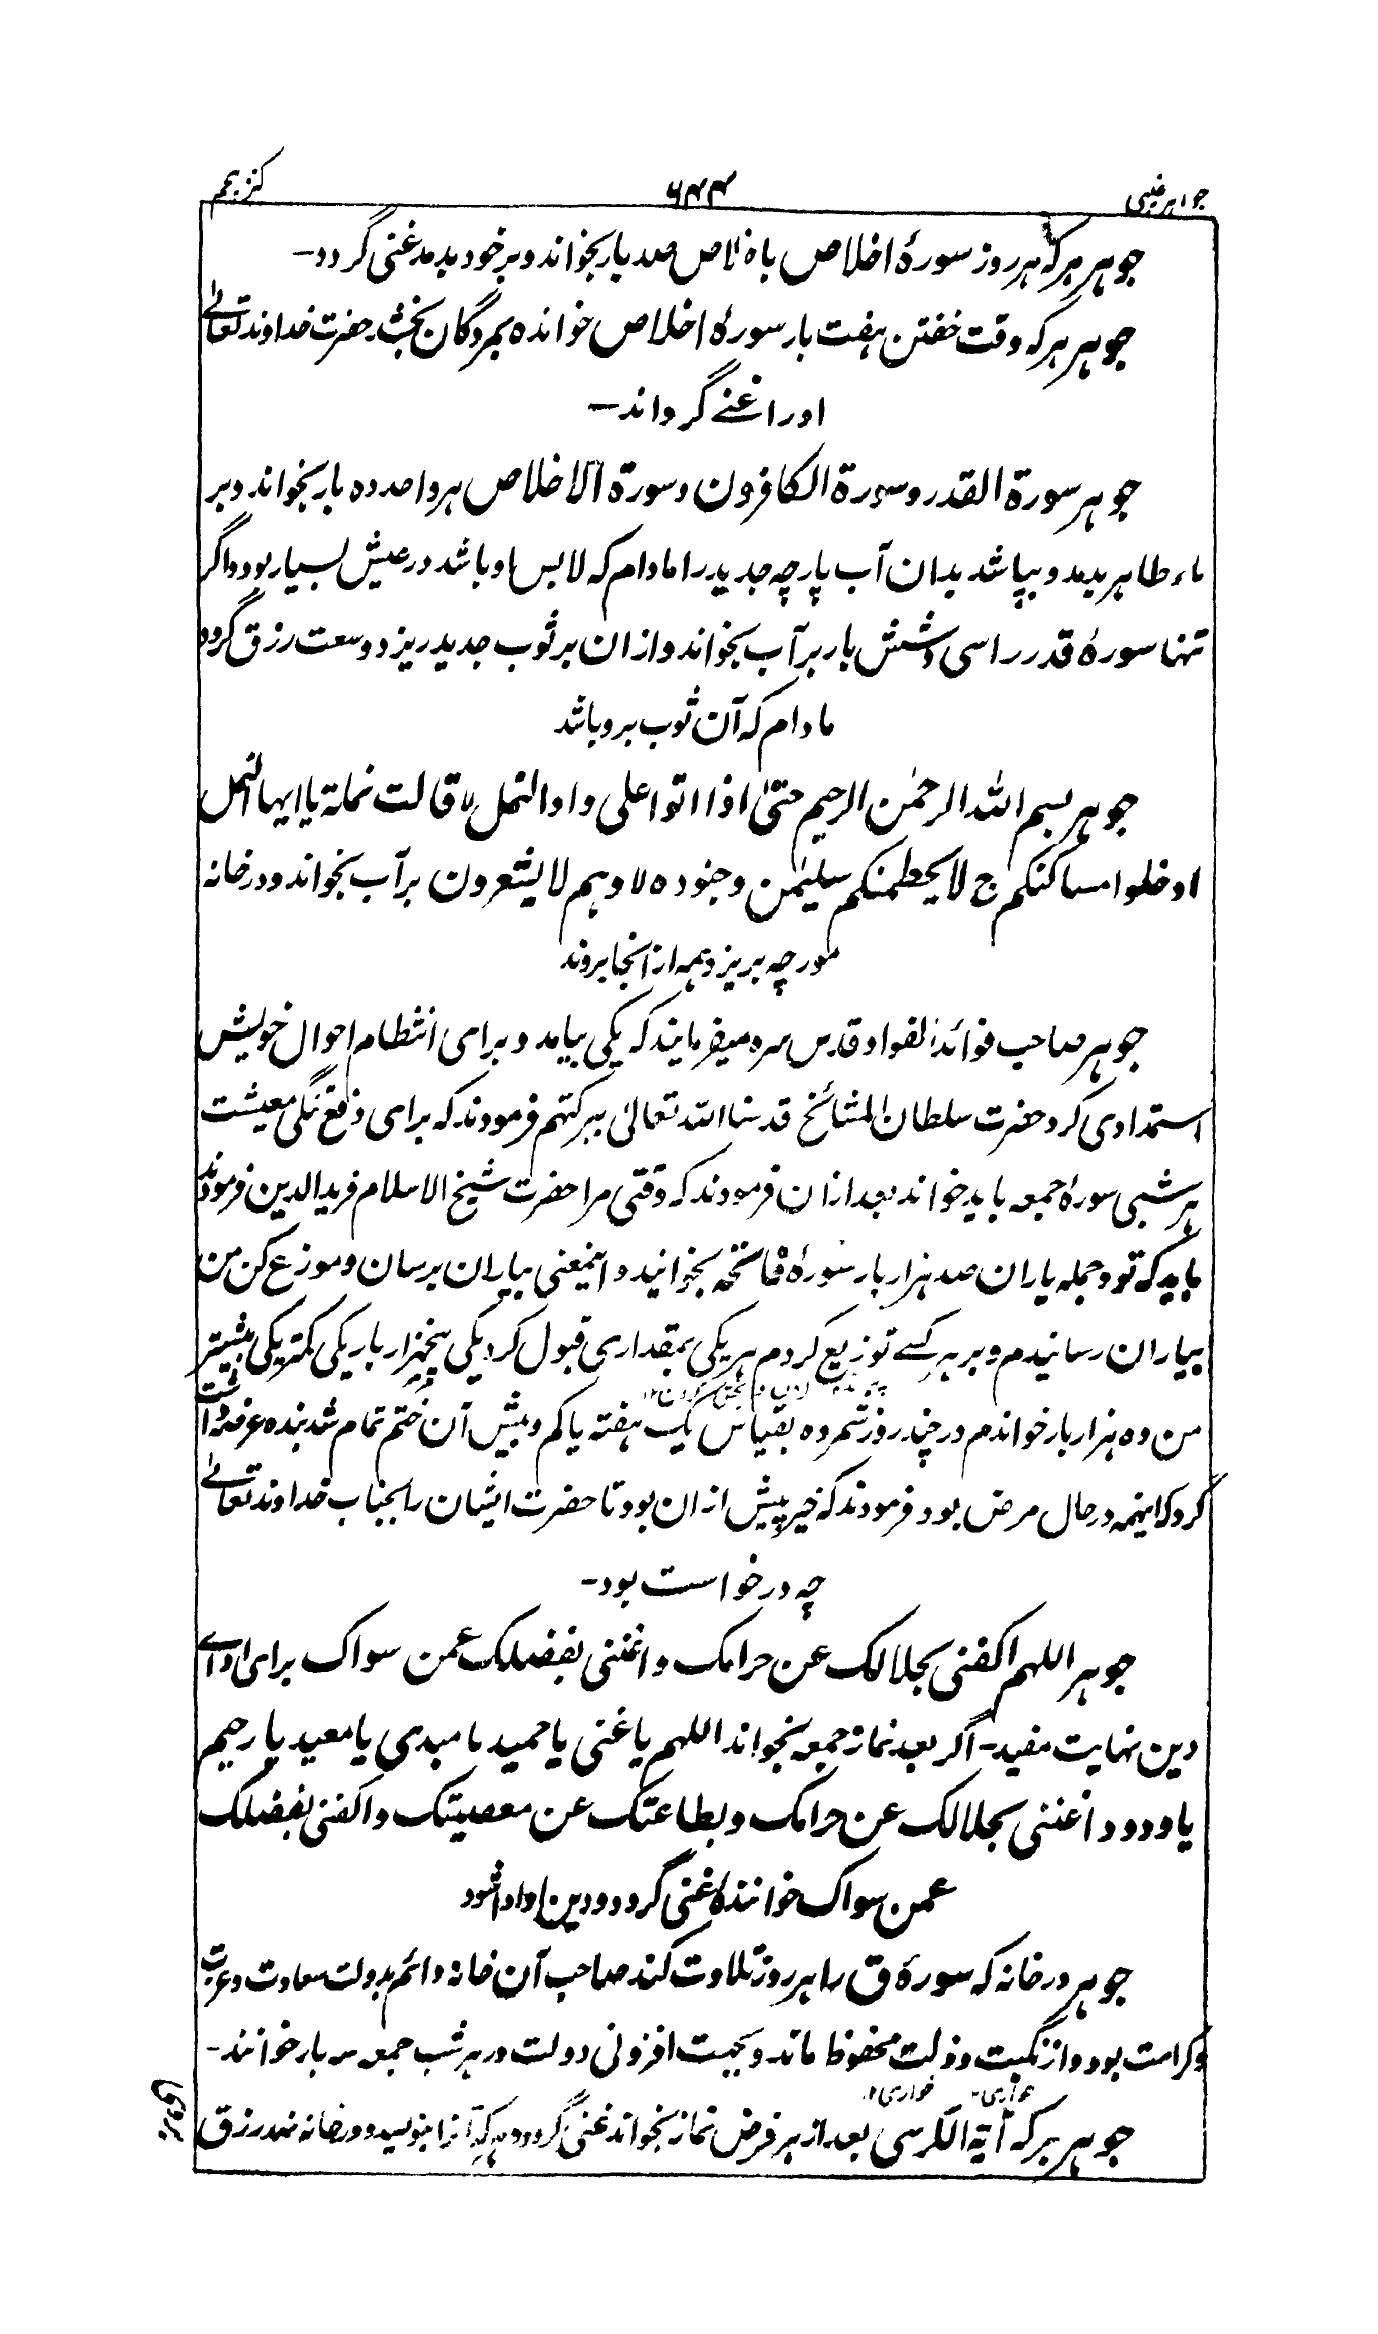 جواہر غیبی ۶۴۴ کنز پنجم
جوہر ہر کہ ہر روز سورۂ اخلاص باخلاص صد بار بخواند و بر خود بدمد غنی گردد۔
جوہر ہر کہ وقت خفتن ہفت بار سورۂ اخلاص خواندہ بمردگان بخشد حضرت خداوند تعالےٰ
اورا غنے گرداند۔
جوہر سورة القدر و سورة الکافرون و سورة الاخلاص ہر واحد دہ بار بخواند و بر
ماء طاہر بدمد و بپاشد بدان آب پارچہ جدید را مادام کہ لابس او باشد در عیش بسیار بود و اگر
تنہا سورۂ قدر را سی و شش بار بر آب بخواند و ازان بر ثوب جدید ریزد وسعت رزق گردد
مادام کہ آن ثوب برو باشد
جوہر بسم اللہ الرحمٰن الرحیم حتیٰ اذا اتوا علی واد النمل لا قالت نملة یا ایہا النمل
ادخلوا مساکنکم ج لا یحطمنکم سلیمٰن و جنودہ لا و ہم لا یشعرون بر آب بخواند و در خانہ
مورچہ بریزد ہمہ از انجا بروند
جوہر صاحب فوائد الفواد قدس سرہ میفرمایند کہ یکی بیامد و برای انتظام احوال خویش
استمدادی کرد حضرت سلطان المشائخ قدسنا اللہ تعالیٰ ببرکتہم فرمودند کہ برای دفع تنگی معیشت
ہر شبی سورۂ جمعہ باید خواند بعد ازان فرمودند کہ وقتی مرا حضرت شیخ الاسلام فرید الدین فرمودند
باید کہ تو و جملہ یاران صد ہزار بار سورۂ فاتحہ بخوانید و اینمعنی بیاران برسان و موزع کن من
بیاران رسانیدم و بر ہر کسے توزیع کردم ہر یکی بمقداری قبول کرد یکی پنجہزار بار یکی کمتر یکی بیشتر
من دہ ہزار بار خواندم در چند روز شمردہ بقیاس یک ہفتہ یا کم و بیش آن ختم تمام شد بندہ عرضداشت
کرد کہ اینہمہ در حال مرض بود فرمودند کہ خیر پیش ازان بود تا حضرت ایشان را بجناب خداوند تعالےٰ
چہ درخواست بود۔
جوہر اللہم اکفنی بحلالک عن حرامک و اغننی بفضلک عمن سواک برای اداے
دین نہایت مفید۔ اگر بعد نماز جمعہ بخواند اللہم یا غنی یا حمید یا مبدی یا معید یا رحیم
یا ودود اغننی بحلالک عن حرامک و بطاعتک عن معصیتک و اکفنی بفضلک
عمن سواک خوانندہ غنی گردد و دین او ادا شود
جوہر در خانہ کہ سورۂ ق را ہر روز تلاوت کند صاحب آن خانہ دائم بدولت سعادت و عزت
و کرامت بود و از نکبت و ذلت محفوظ ماند و بجہت افزونی دولت در ہر شب جمعہ سہ بار خوانند۔
خواری۔ خواری۱۲
جوہر ہر کہ آیة الکرسی بعد از ہر فرض نماز بخواند غنی گردد و ہر کہ آنرا بنویسد و در خانہ نہد رزق